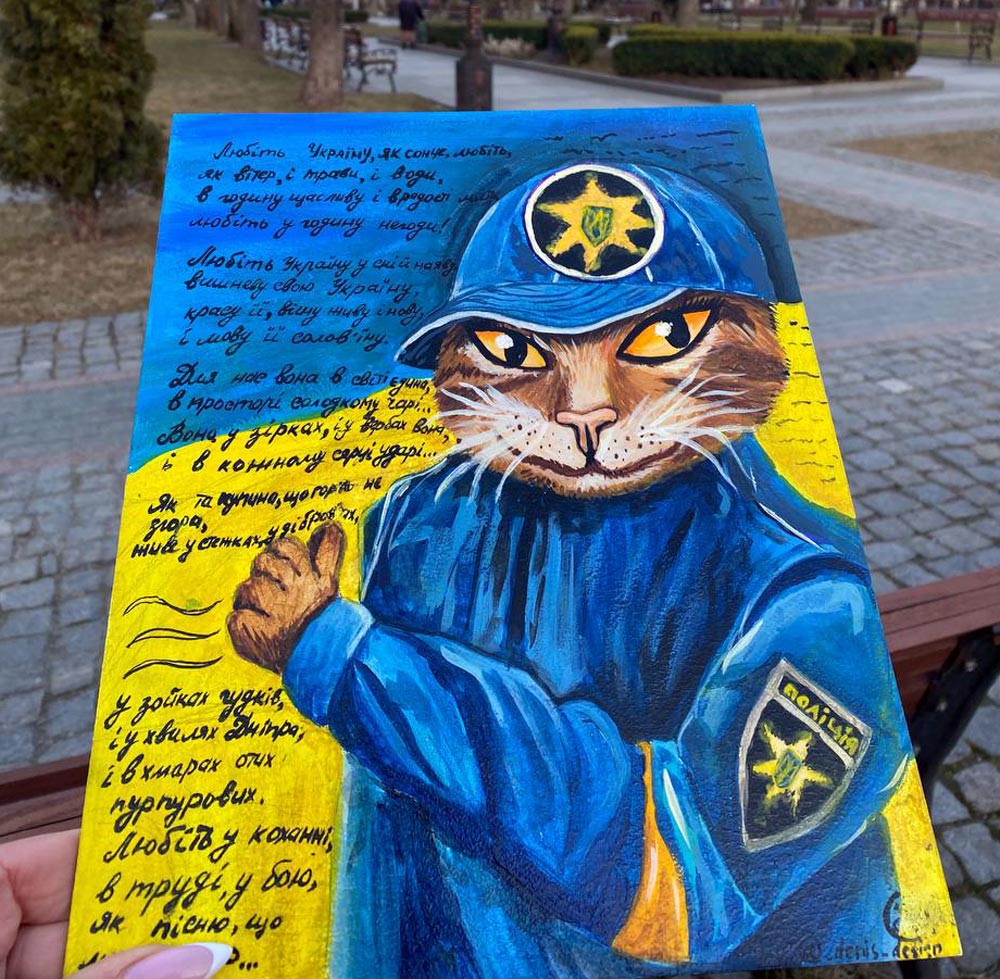 Любіть Україну, як сонце, любіть,
як вітер, і трави, і води,
в годину щасливу і в радості мить,
любіть у годину негоди!
Любіть Україну у сні й наяву
вишневу свою Україну,
красу її, вічну живу і нову,
і мову її солов'їну.
Для нас вона в світі єдина,
в просторів солодкому чарі...
Вона у зірках, і у вербах вона,
і в кожному серці ударі...
Як та купина, що горить не
згора,
живе у стежках, у дібровах,
у зойках гудків,
і у хвилях Дніпра,
і в хмарах отих
пурпурових.
Любіть у коханні,
в труді, у бою,
як пісню, що
поліція